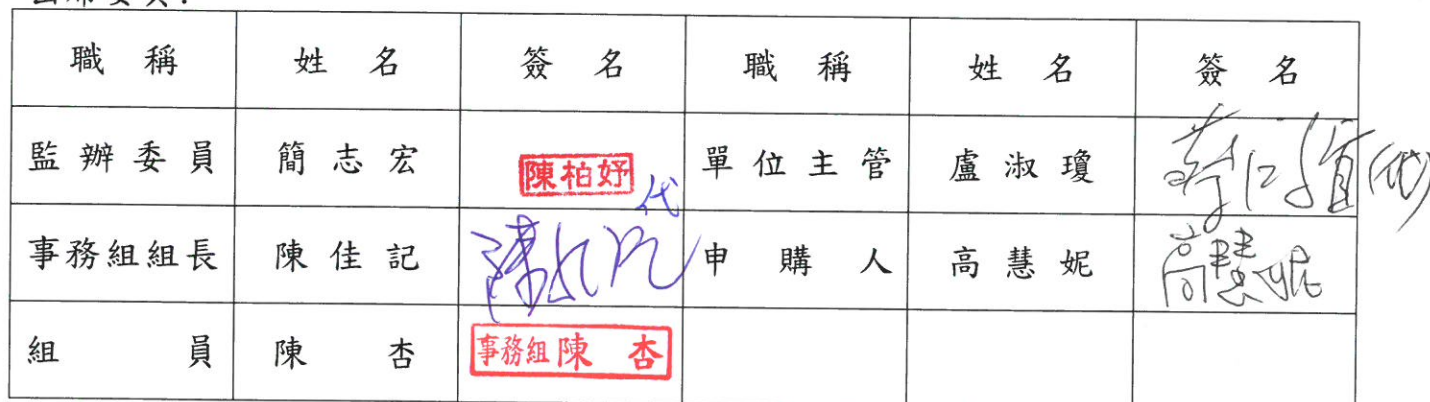 職稱 姓名 簽名 職稱 姓名 簽名
監辦委員 簡志宏 陳柏妤 代 單位主管 盧淑瓊 (代)
事務組組長 陳佳記 申購人 高慧妮 高慧妮
組員 陳杏 事務組 陳杏